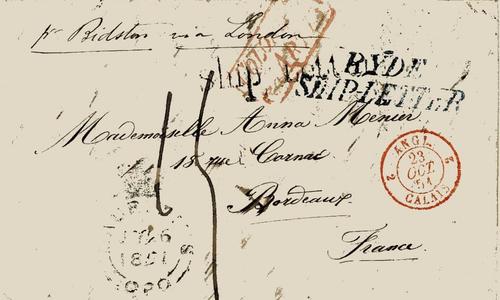 pr Bidston via London
Ship Letter
RYDE
SHIP-LETTER
Mademoiselle Anna Menier
15 rue Cornac
Bordeaux
France
ANGL.
2 23 2
OCT.
51
CALAIS
1851